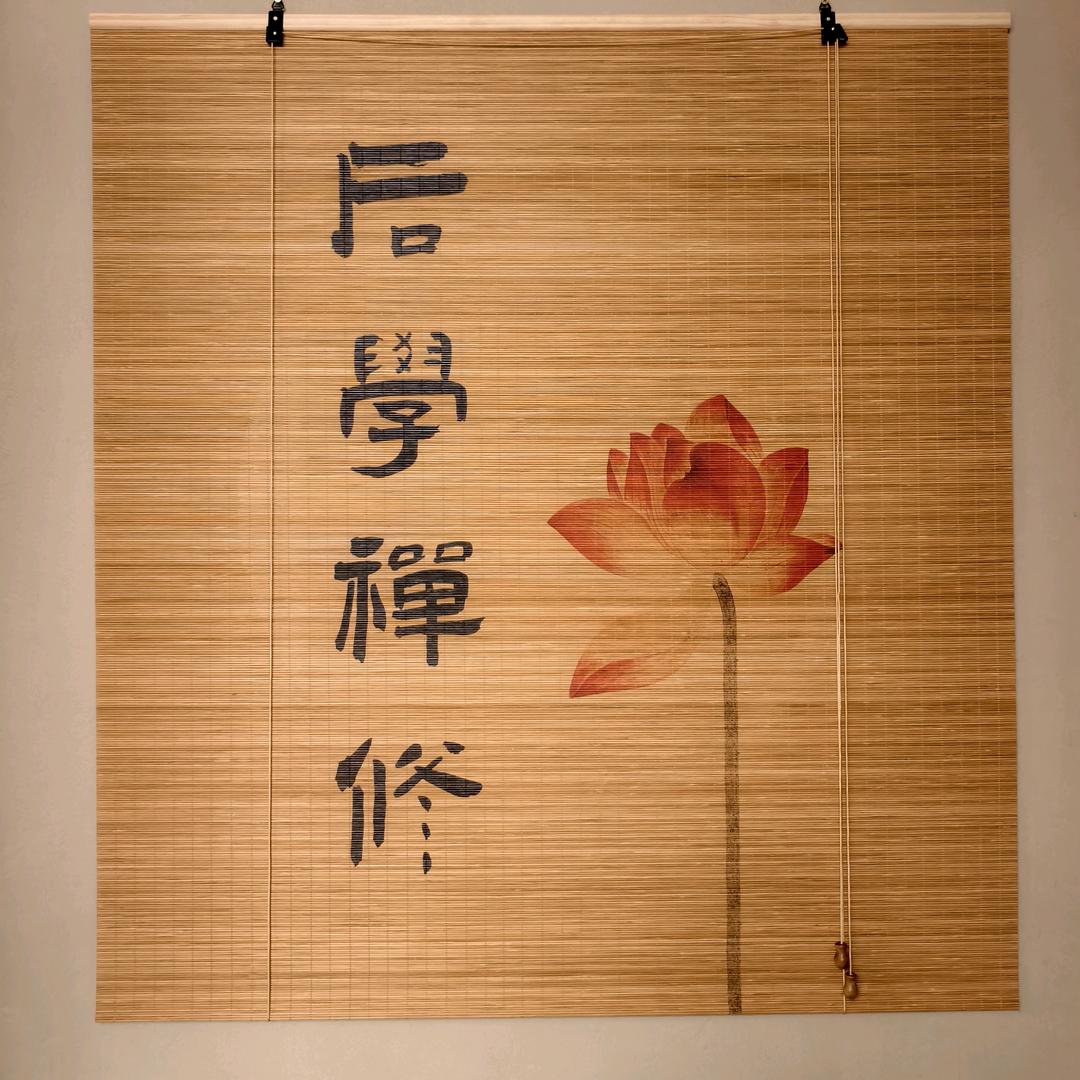 后學禪修